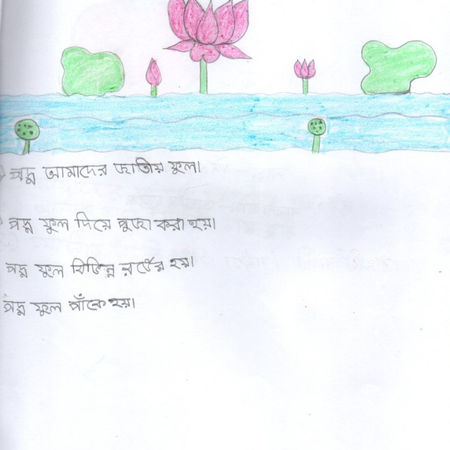 পদ্ম আমাদের জাতীয় ফুল।
পদ্ম ফুল দিয়ে পুজো করা হয়।
পদ্ম ফুল বিভিন্ন রঙের হয়।
পদ্ম ফুল পাঁকে হয়।